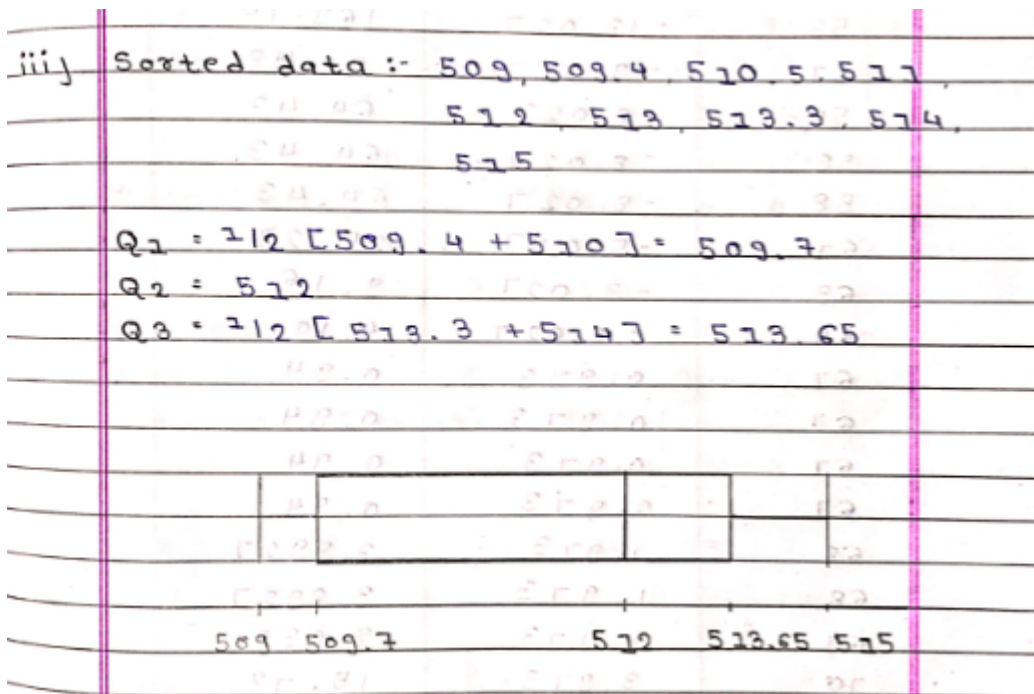 iii) Sorted data :- 509, 509.4, 510.5, 511,
512, 513, 513.3, 514,
515
Q1 = 1/2 [509.4 + 510] = 509.7
Q2 = 512
Q3 = 1/2 [513.3 + 514] = 513.65
509 509.7 512 513.65 515